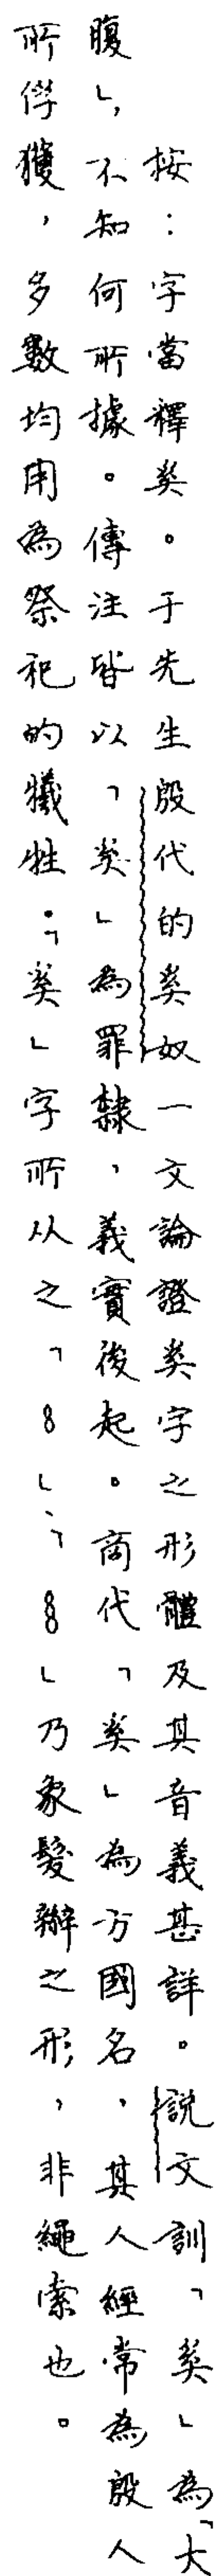 按：字當釋奚。于先生殷代的奚奴一文論證奚字之形體及其音義甚詳。說文訓「奚」為「大
腹」，不知何所據。傳注皆以「奚」為罪隸，義實後起。商代「奚」為方國名，其人經常為殷人
所俘獲，多數均用為祭祀的犧牲。「奚」字所从之「」、「」乃象髮辮之形，非繩索也。